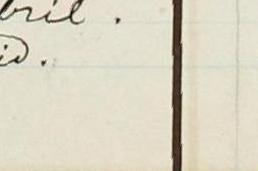 bril.
id.